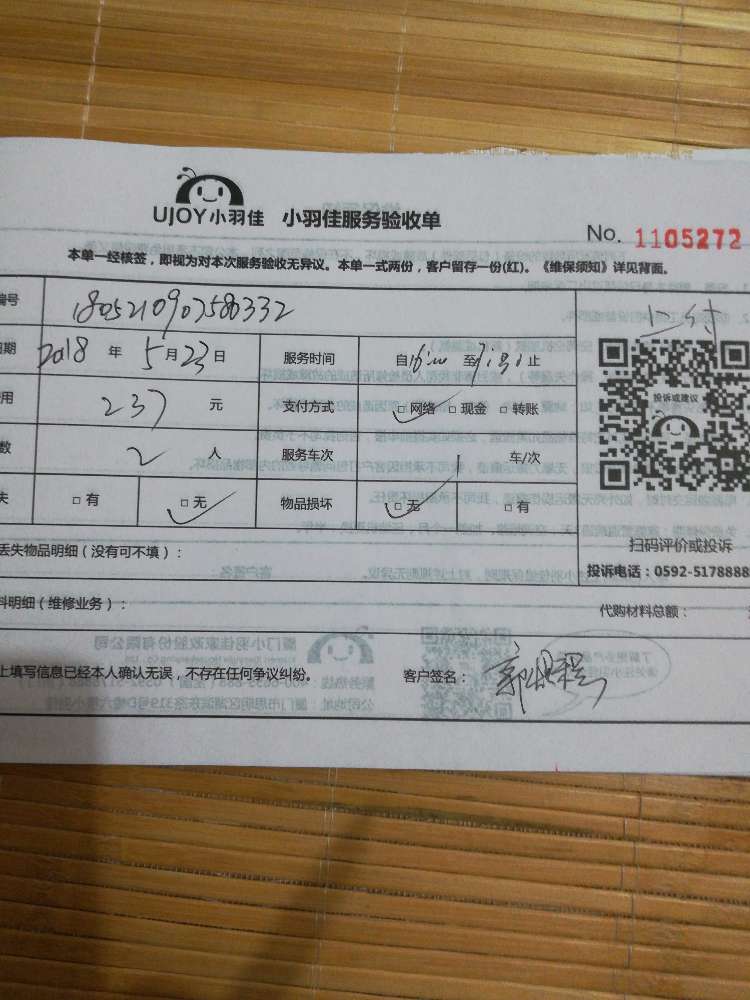 UJOY小羽佳 小羽佳服务验收单
No. 1105272
本单一经核签，即视为对本次服务验收无异议。本单一式两份，客户留存一份(红)。《维保须知》详见背面。
编号 1805210907580332
上付
日期 2018 年 5 月 23 日 服务时间 自 至 止
用 237 元 支付方式 □ 网络 □ 现金 □ 转账
投诉或建议
数 2 人 服务车次 1 车/次
失 □ 有 □ 无 物品损坏 □ 无 □ 有
扫码评价或投诉
丢失物品明细（没有可不填）：
投诉电话：0592-5178888
料明细（维修业务）：
代购材料总额：
上填写信息已经本人确认无误，不存在任何争议纠纷。 客户签名：